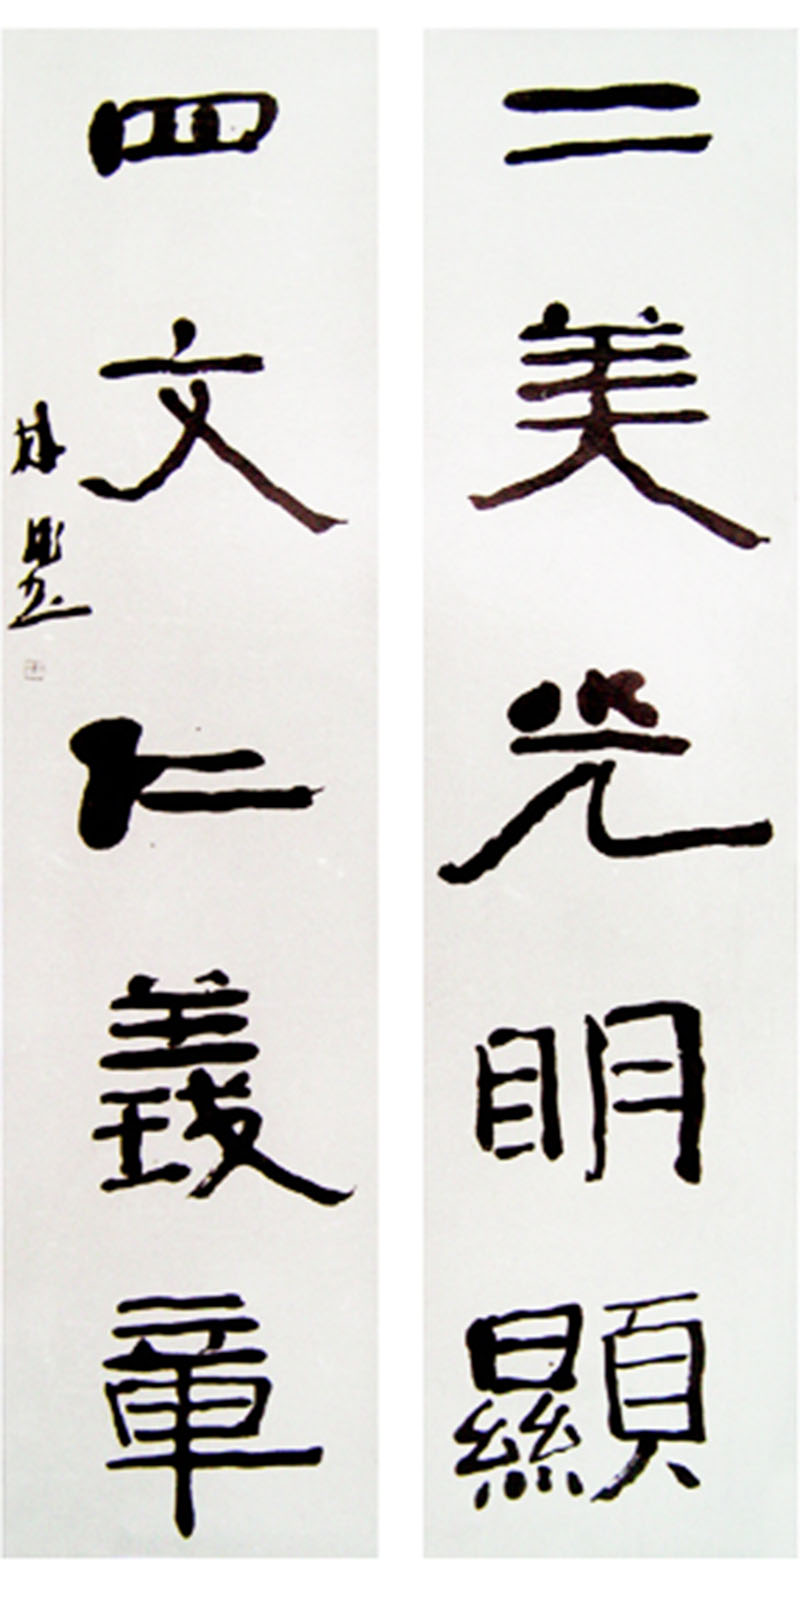 二美光明顯
四文仁義章